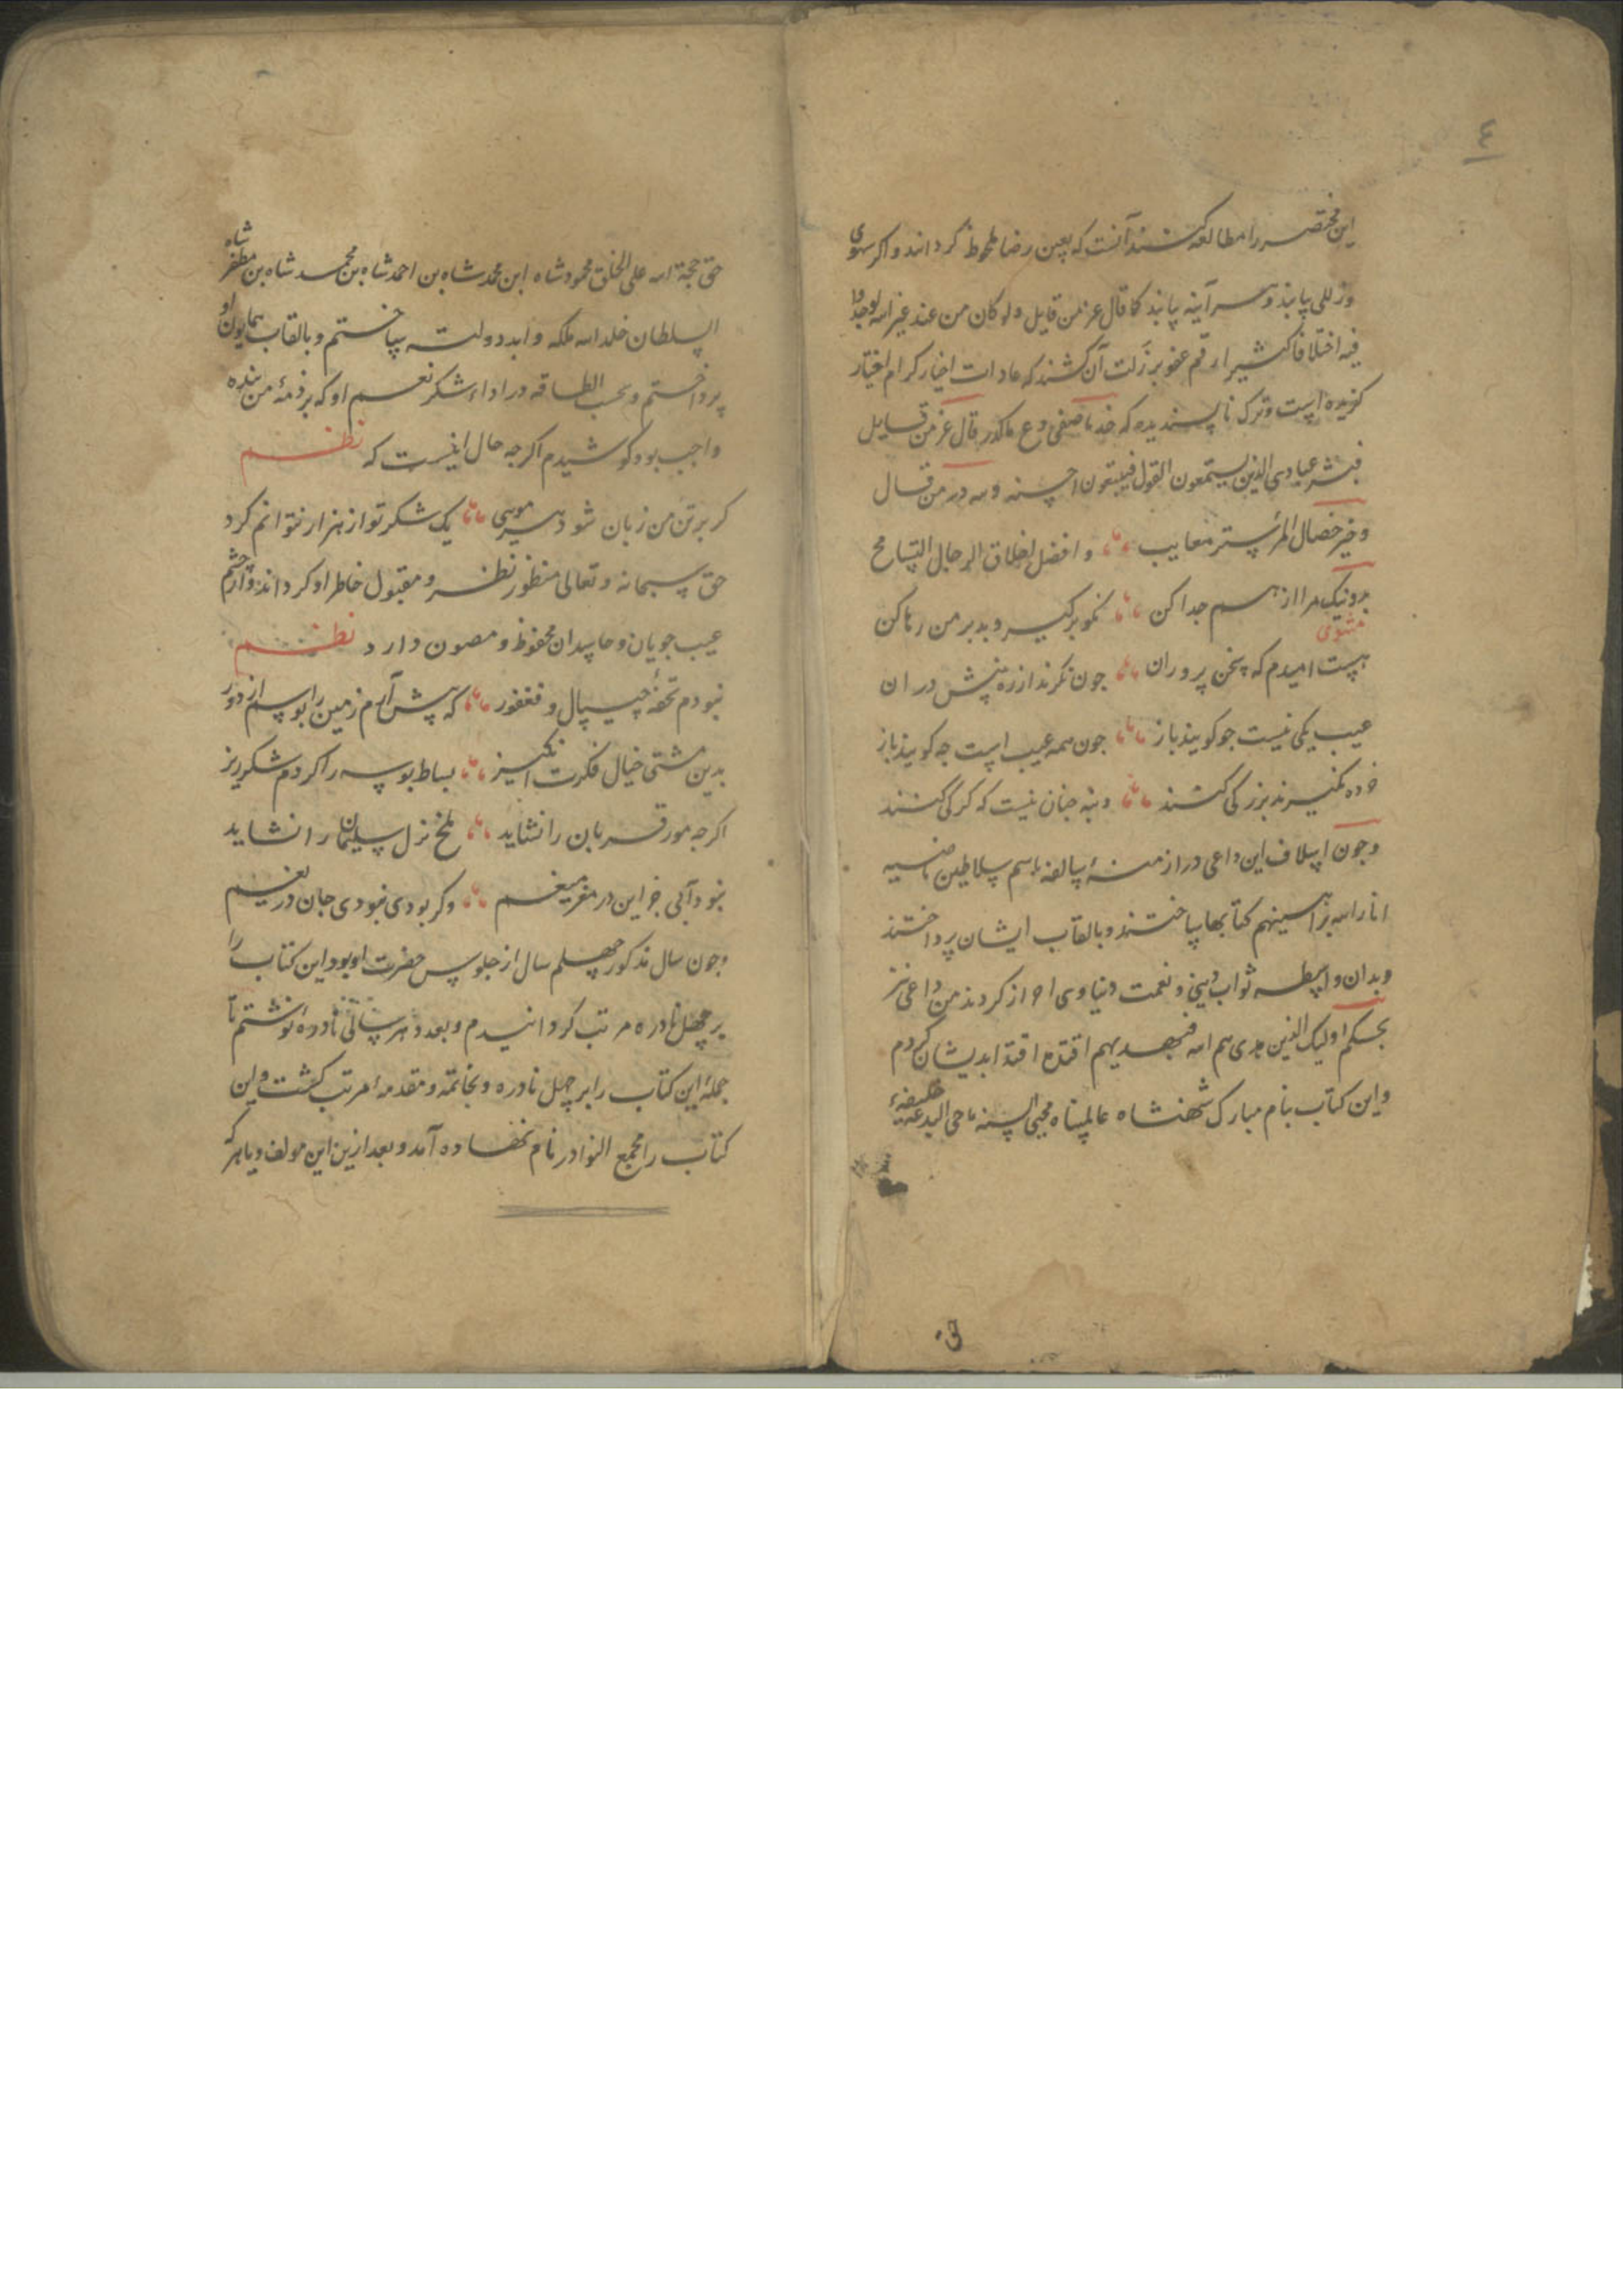 ٤
این مختصر را مطالعه کنند آنست که بعین رضا ملحوظ گردانند و اکر سهوی
و زللی یابند و هر آینه یابند کما قال عز من قایل ولو کان من عند غیر الله لوجدوا
فیه اختلافا کثیرا رقم عفو بر زلت آن کشند که عادات اخیار کرام اختیار
کزیده است و ترک ناپسندیده که خذ ما صفی ودع ما کدر قال عز من قایل
فبشر عبادی الذین یستمعون القول فیتبعون احسنه ولله در من قال
و خیر خصال المرء ستر معایب و افضل اخلاق الرجال التسامح
بد و نیک مرا از هم جدا کن نکو بر کیر و بد بر من رها کن
مثنوی
هست امیدم که سخن پروران جون نکرند از ره بینش در ان
عیب یکی نیست جو کویند باز جون همه عیب است جه کویند باز
خرده نکیرند بزرکی کنند دنبه جنان نیست که کرکی کنند
و جون اسلاف این داعی در ازمنهٔ سالفه باسم سلاطین ماضیه
انار الله براهینهم کتابها ساختند و بالقاب ایشان پرداختند
و بدان واسطه ثواب دینی و نعمت دنیاوی احراز کردند من داعی نیز
بحکم اولیک الذین هدی هم الله فبهدیهم اقتده اقتدا بدیشان کردم
و این کتاب بنام مبارک شهنشاه عالمپناه محیی السنه ماحی البدعه خلیفهٔ
حق حجة الله علی الخلق محمود شاه ابن محمد شاه بن احمد شاه بن محمد شاه بن مظفر شاه
السلطان خلد الله ملکه و ابد دولته ساختم و بالقاب همایون او
پرداختم و بحسب الطاقه در اداء شکر نعم او که بر ذمهٔ من بنده
واجب بود کوشیدم اکرجه حال اینست که نظم
کر بر تن من زبان شود هر مویی یک شکر تو از هزار نتوانم کرد
حق سبحانه و تعالی منظور نظر و مقبول خاطر او کرداند و از چشم
عیب جویان و حاسدان محفوظ و مصون دارد نظم
نبودم تحفهٔ جیپال و فغفور که پیش آرم زمین را بوسم از دور
بدین مشتی خیال فکرت انکیز بساط بوسه را کردم شکرریز
اکرجه مور قربان را نشاید ملخ نزل سلیمان را نشاید
نبود آبی جز این در مغز میغم وکر بودی نبودی جان دریغم
وجون سال مذکور چهلم سال از جلوس حضرت او بود این کتاب را
بر چهل نادره مرتب کردانیدم و بعدد هر سالی نادرهٔ نوشتم تا
جملهٔ این کتاب را بر چهل نادره و بخاتمه و مقدمهٔ مرتب کشت و این
کتاب را مجمع النوادر نام نهاده آمد و بعد ازین این مولف و یا هر که